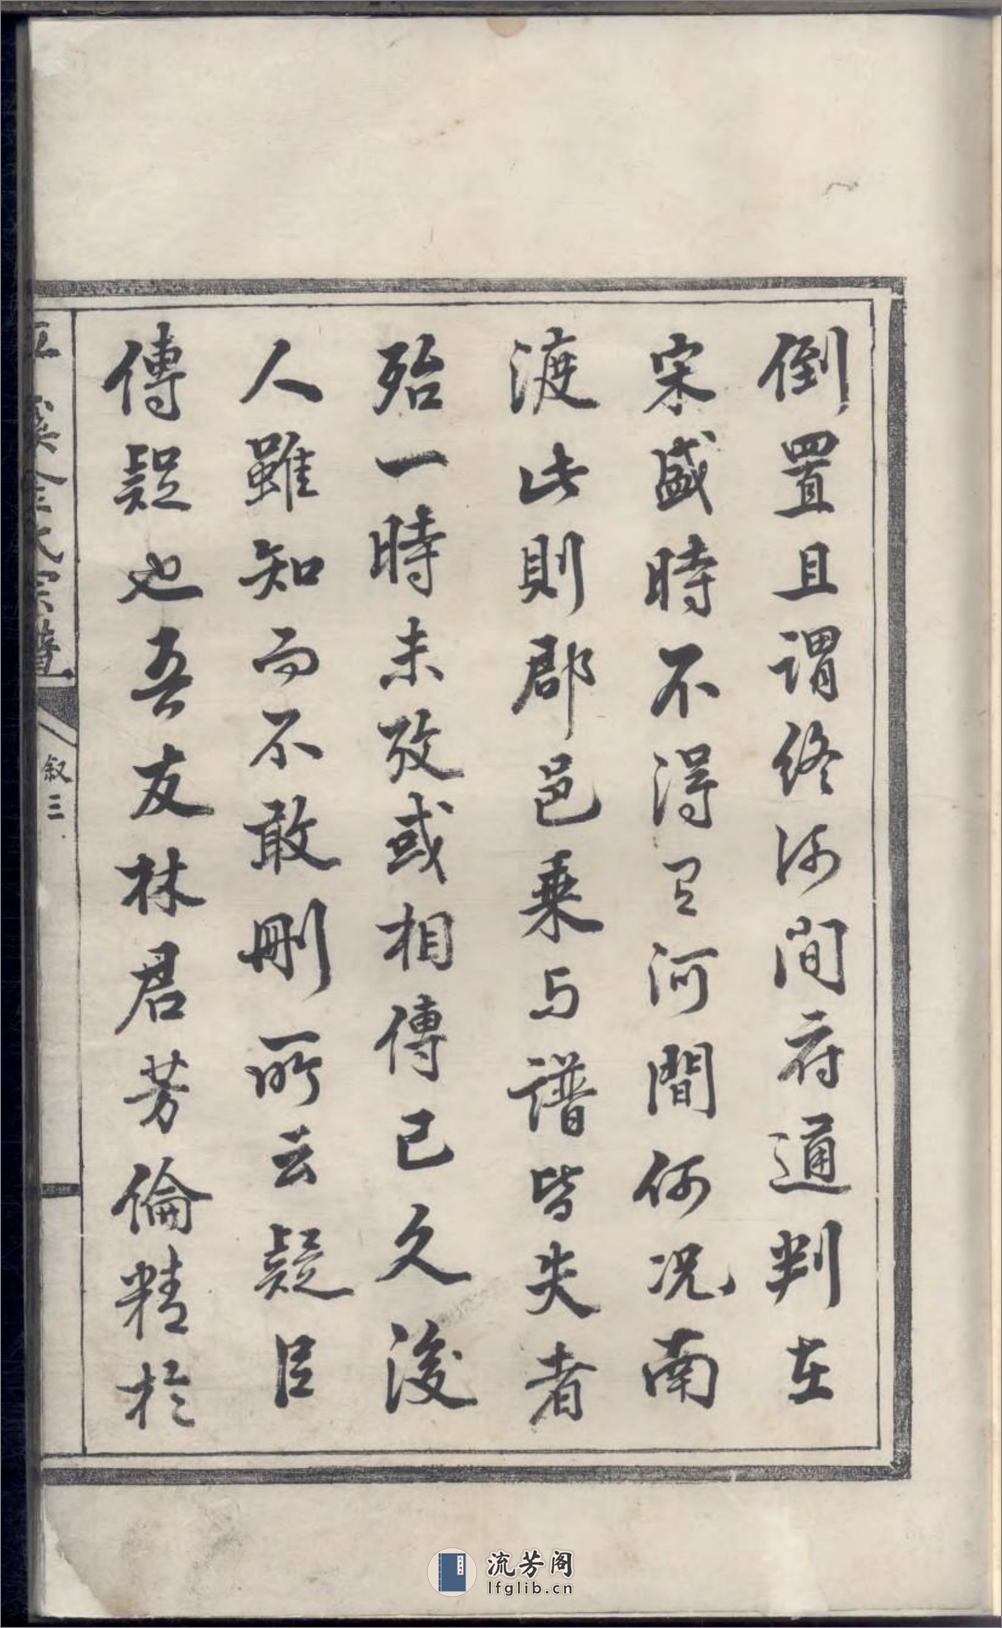 倒置且謂終河間府通判在
宋盛時不得已河間何况南
渡此則郡邑乗与譜皆失者
殆一時未攷或相傳已久後
人雖知而不敢刪所云疑以
傳疑也吾友林君芳倫精於
溪金氏宗譜
叙三
流芳阁
lfglib.cn